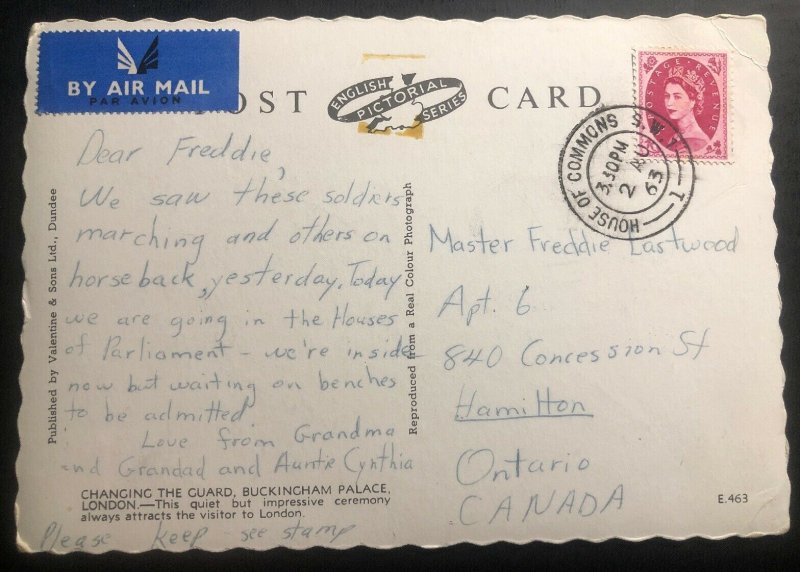 BY AIR MAIL
PAR AVION
POST CARD
ENGLISH
PICTORIAL
SERIES
HOUSE OF COMMONS S.W.1
3.30PM
2 AU
63
POSTAGE REVENUE
Dear Freddie,
We saw these soldiers
marching and others on
horseback, yesterday. Today
we are going in the Houses
of Parliament - we're inside
now but waiting on benches
to be admitted
Love from Grandma
and Grandad and Auntie Cynthia
Please keep - see stamp
Master Freddie Eastwood
Apt. 6
840 Concession St
Hamilton
Ontario
CANADA
Published by Valentine & Sons Ltd., Dundee
Reproduced from a Real Colour Photograph
CHANGING THE GUARD, BUCKINGHAM PALACE,
LONDON.—This quiet but impressive ceremony
always attracts the visitor to London.
E.463